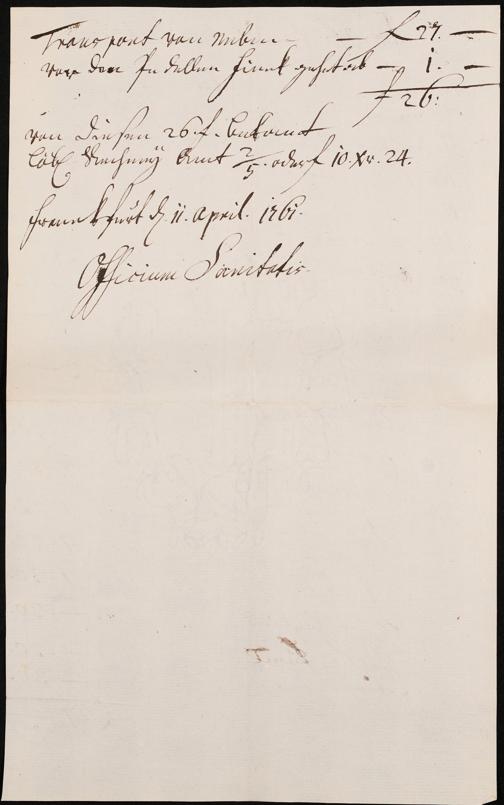 Transport von neben — — f 27. —
vor den Pedellen Finck gehet ab — 1. —
f 26:
von diesen 26. f. bekomt
Löbl. Rechney Amt 2/5. oder f 10. Xr. 24.
Franckfurt d. 11. April. 1761.
Officium Sanitatis.